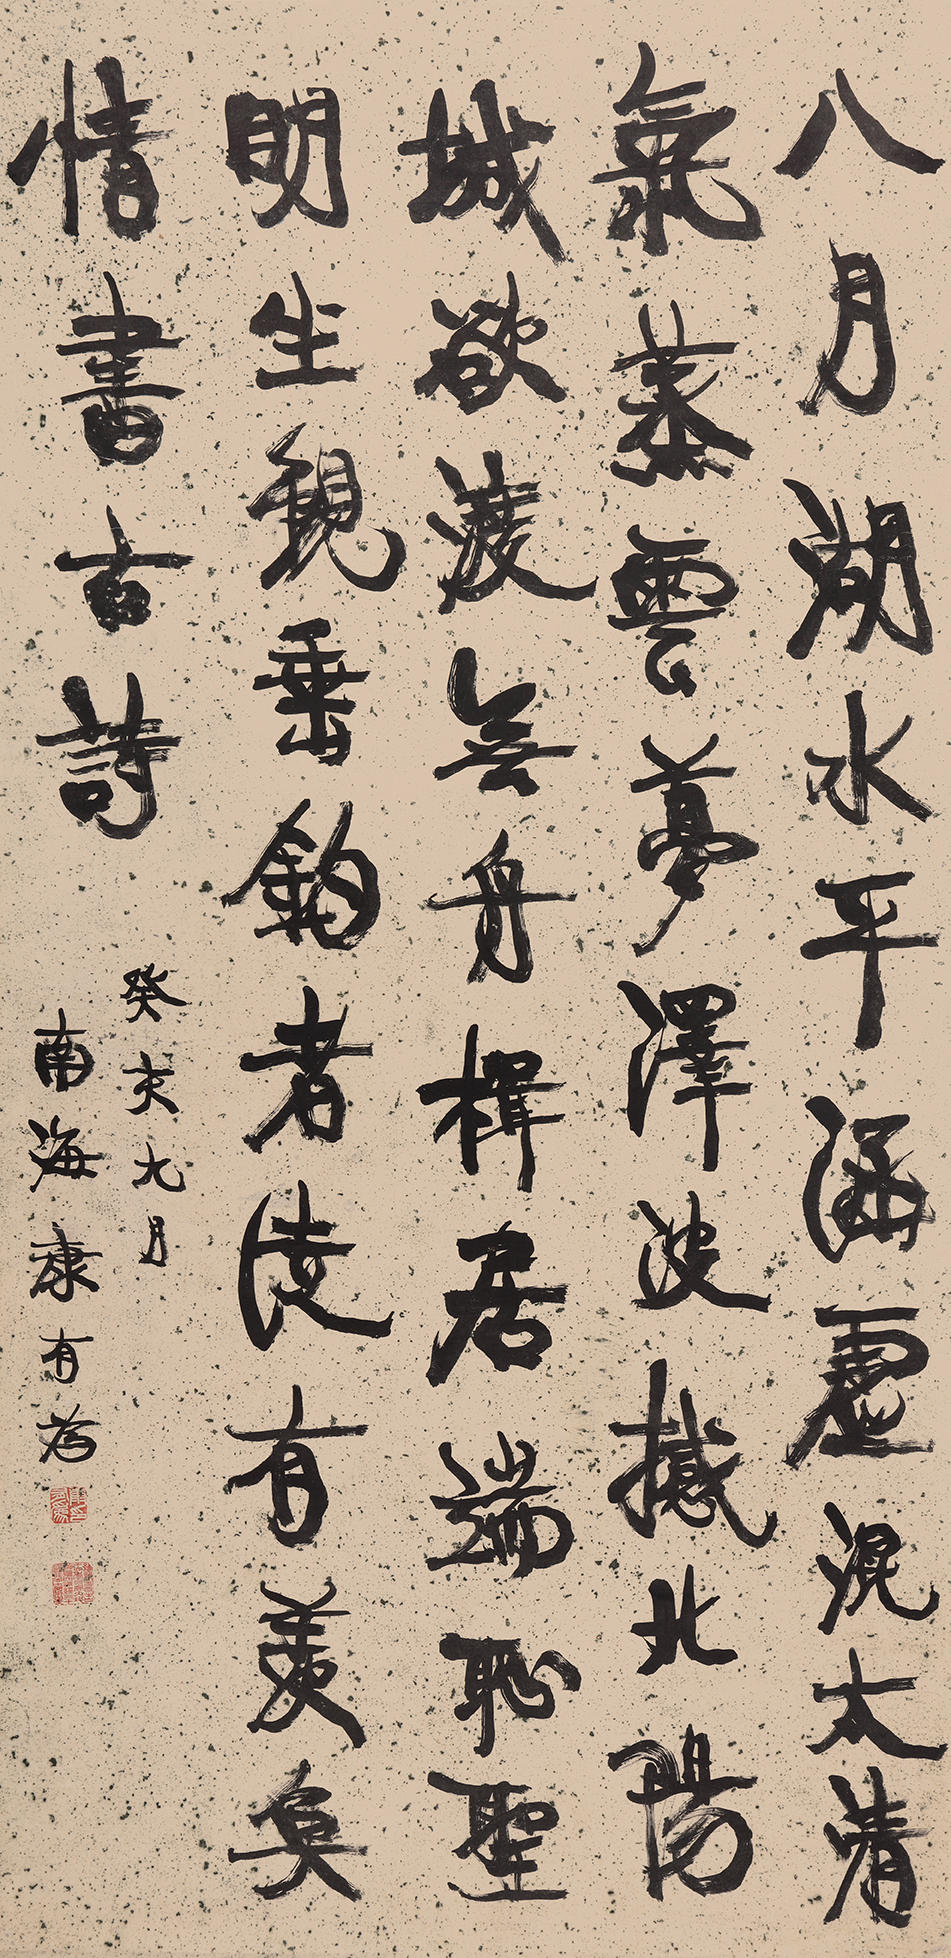 八月湖水平涵虛混太清
氣蒸雲夢澤波撼北陽
城欲渡無舟楫居端恥聖
明坐觀垂釣者徒有羨魚
情書古詩
癸亥九月
南海康有為